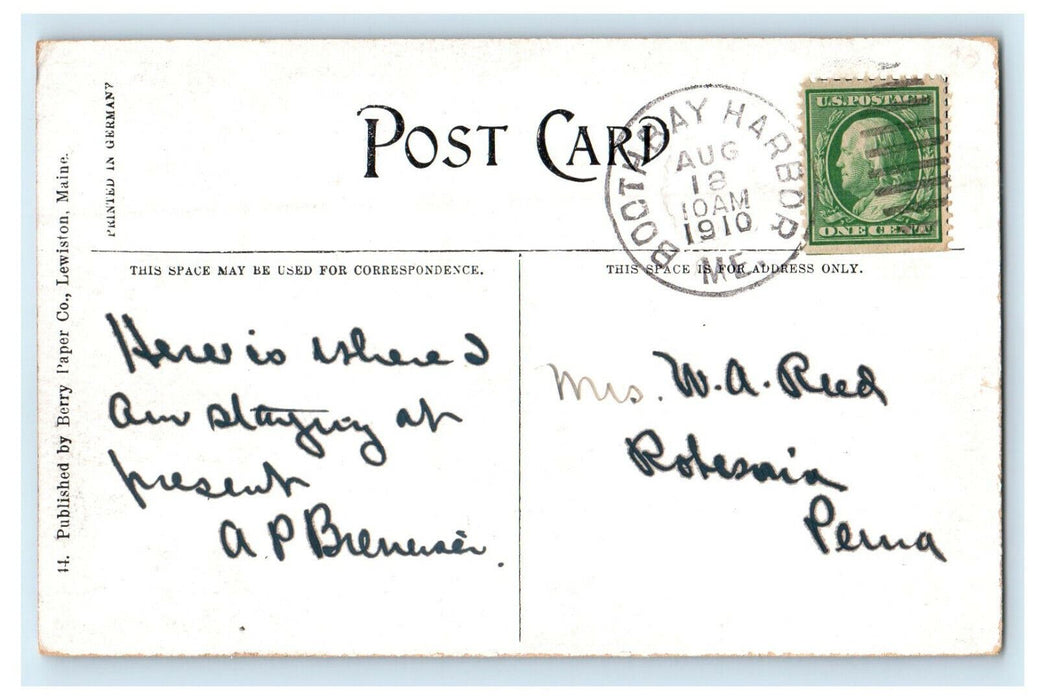 PRINTED IN GERMANY
POST CARD
BOOTHBAY HARBOR
AUG
18
10AM
1910
ME.
U.S. POSTAGE
ONE CENT
14. Published by Berry Paper Co., Lewiston, Maine.
THIS SPACE MAY BE USED FOR CORRESPONDENCE.
THIS SPACE IS FOR ADDRESS ONLY.
Here is where I
am staying at
present
A P
Mrs. W. A. Reed
Robesonia
Penna